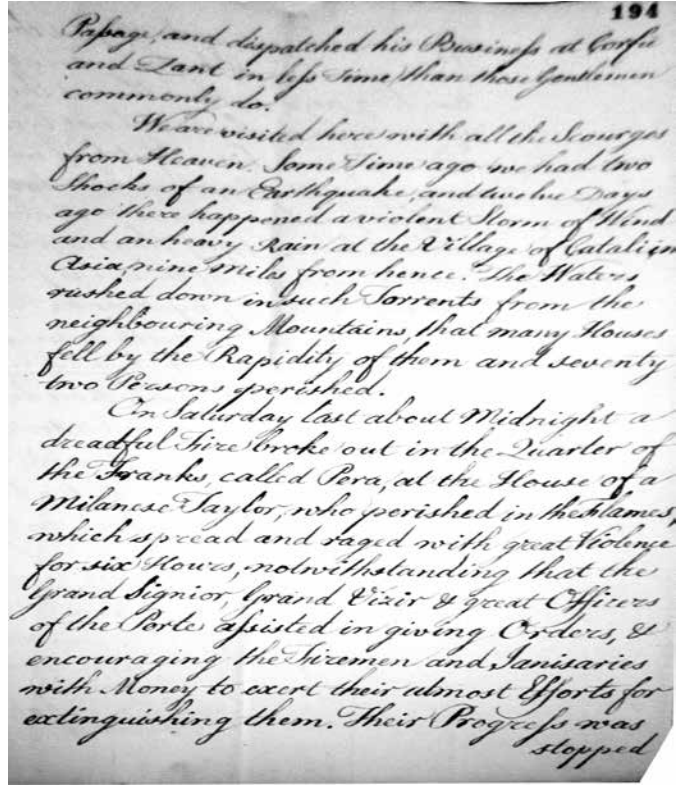 194
Passage, and dispatched his Business at Corfu
and Zant in less Time than those Gentlemen
commonly do.
We are visited here with all the Scourges
from Heaven. Some Time ago we had two
Shocks of an Earthquake, and twelve Days
ago there happened a violent Storm of Wind
and an heavy Rain at the Village of Catali in
Asia, nine Miles from hence. The Waters
rushed down in such Torrents from the
neighbouring Mountains, that many Houses
fell by the Rapidity of them and seventy
two Persons perished.
On Saturday last about Midnight a
dreadful Fire broke out in the Quarter of
the Franks, called Pera, at the House of a
Milanese Taylor, who perished in the Flames,
which spread and raged with great Violence
for six Hours, notwithstanding that the
Grand Signior, Grand Vizir & great Officers
of the Porte assisted in giving Orders, &
encouraging the Firemen and Janisaries
with Money to exert their utmost Efforts for
extinguishing them. Their Progress was
stopped